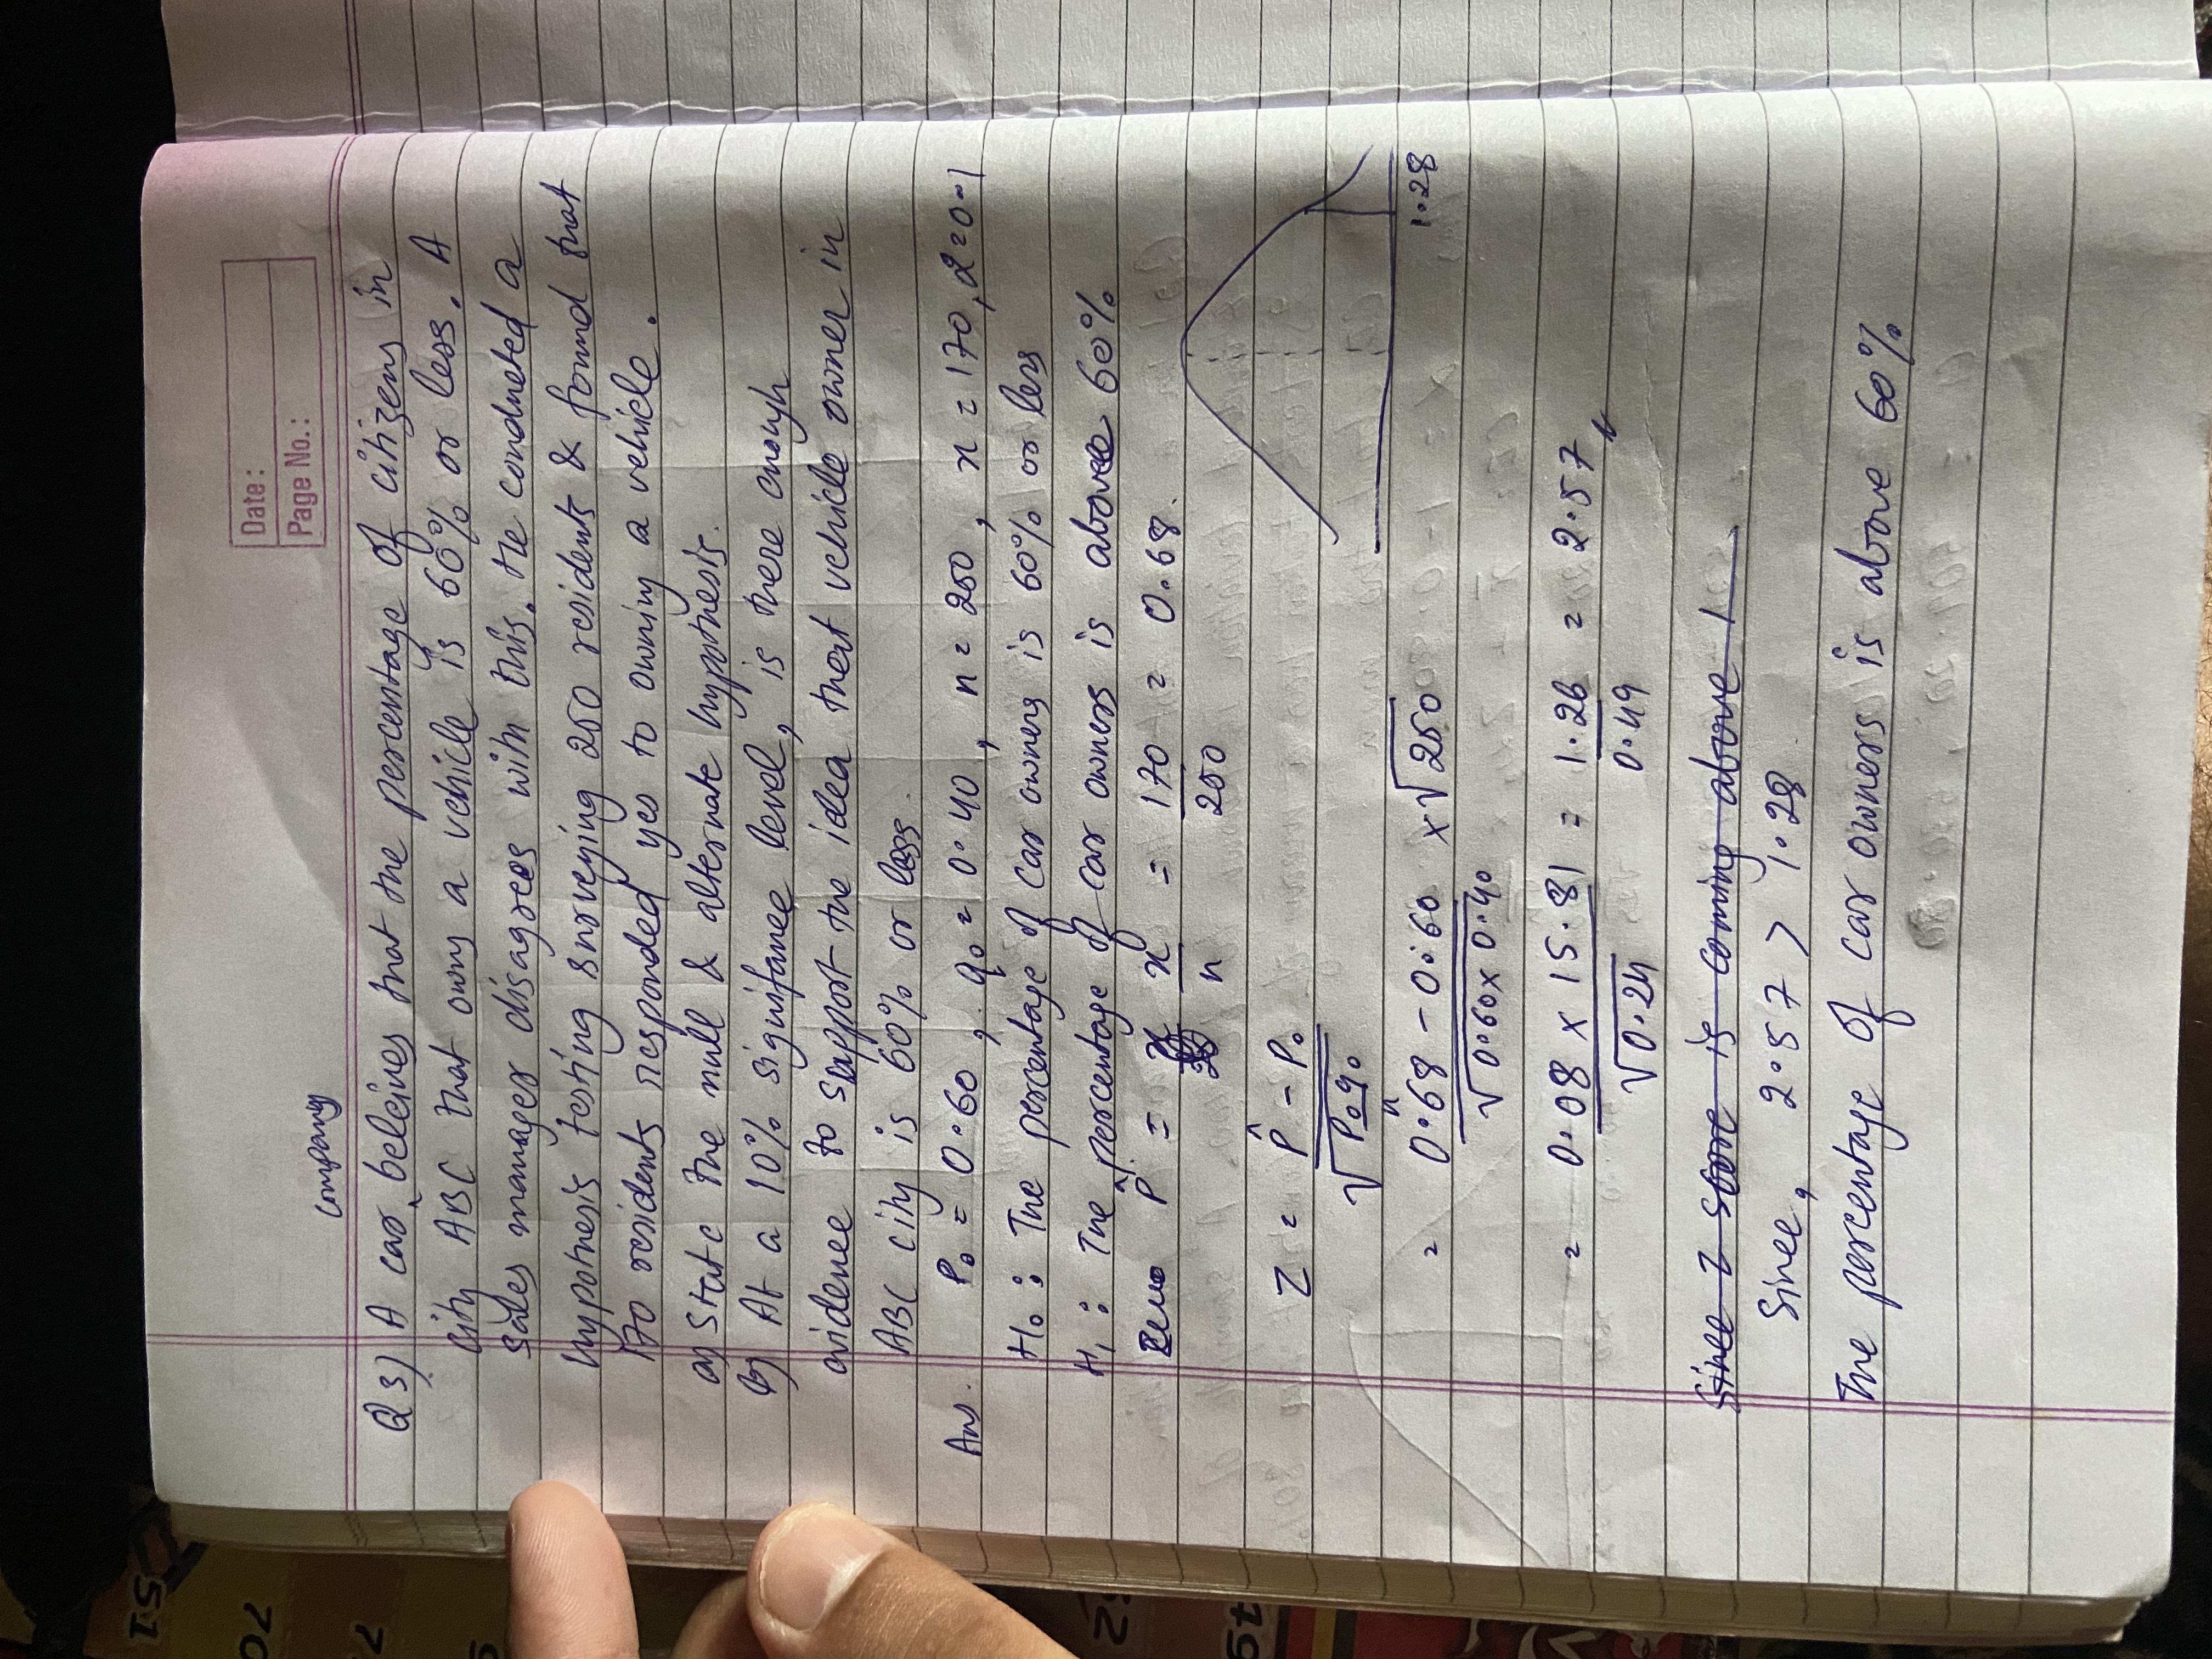 Date :
Page No. :
company
Q3) A car beleives that the percentage of citizens in
city ABC that owns a vehicle is 60% or less. A
sales manager disagrees with this. He conducted a
hypothesis testing surveying 250 residents & found that
170 residents responded yes to owning a vehicle.
a) State the null & alternate hypothesis.
b) At a 10% signifance level, is there enough
evidence to support the idea that vehicle owner in
ABC city is 60% or less.
Ans. P₀ = 0.60, q₀ = 0.40, n = 250, x = 170, α = 0.1
H₀ : The percentage of car owners is 60% or less
H₁ : The percentage of car owners is above 60%
P̂ = x/n = 170/250 = 0.68.
Z = P̂ - P₀ / √(P₀q₀/n)
= 0.68 - 0.60 / √0.60 x 0.40 x √250
1.28
= 0.08 x 15.81 / √0.24 = 1.26 / 0.49 = 2.57
Since Z score is coming above 1
Since, 2.57 > 1.28
The percentage of car owners is above 60%